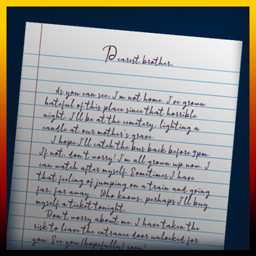 Dearest brother,
As you can see, I'm not home. I've grown
hateful of this place since that horrible
night. I'll be at the cemetery, lighting a
candle at our mother's grave.
I hope I'll catch the bus back before 9pm.
If not, don't worry! I'm all grown up now, I
can watch after myself. Sometimes I have
that feeling of jumping on a train and going
far, far away... Who knows, perhaps I'll buy
myself a ticket tonight.
Don't worry about me. I have taken the
risk to leave the entrance door unlocked for
you. See you (hopefully) soon!